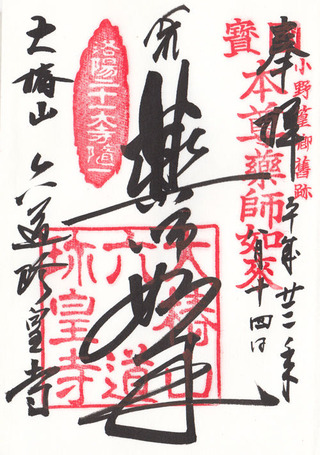 小野篁卿舊跡
國寶
本尊藥師如來
奉拝
平成廿二年
八月十四日
薬師
洛陽二十一大寺随一
大椿山
六道
珍皇寺
大椿山 六道珍皇寺